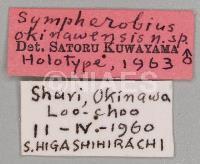 Sympherobius
okinawensis n. sp.
Det. SATORU KUWAYAMA ♂
Holotype, 1963
©NIAES
Shuri, Okinawa
Loo-choo
11-IV-1960
S. HIGASHIHIRACHI